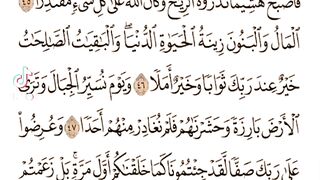 فَأَصْبَحَ هَشِيمًا تَذْرُوهُ الرِّيَاحُ وَكَانَ اللَّهُ عَلَىٰ كُلِّ شَيْءٍ مُقْتَدِرًا ٤٥
الْمَالُ وَالْبَنُونَ زِينَةُ الْحَيَوٰةِ الدُّنْيَا ۖ وَالْبَٰقِيَٰتُ الصَّٰلِحَٰتُ
خَيْرٌ عِندَ رَبِّكَ ثَوَابًا وَخَيْرٌ أَمَلًا ٤٦ وَيَوْمَ نُسَيِّرُ الْجِبَالَ وَتَرَى
الْأَرْضَ بَارِزَةً وَحَشَرْنَٰهُمْ فَلَمْ نُغَادِرْ مِنْهُمْ أَحَدًا ٤٧ وَعُرِضُوا
عَلَىٰ رَبِّكَ صَفًّا لَّقَدْ جِئْتُمُونَا كَمَا خَلَقْنَٰكُمْ أَوَّلَ مَرَّةٍ ۚ بَلْ زَعَمْتُمْ